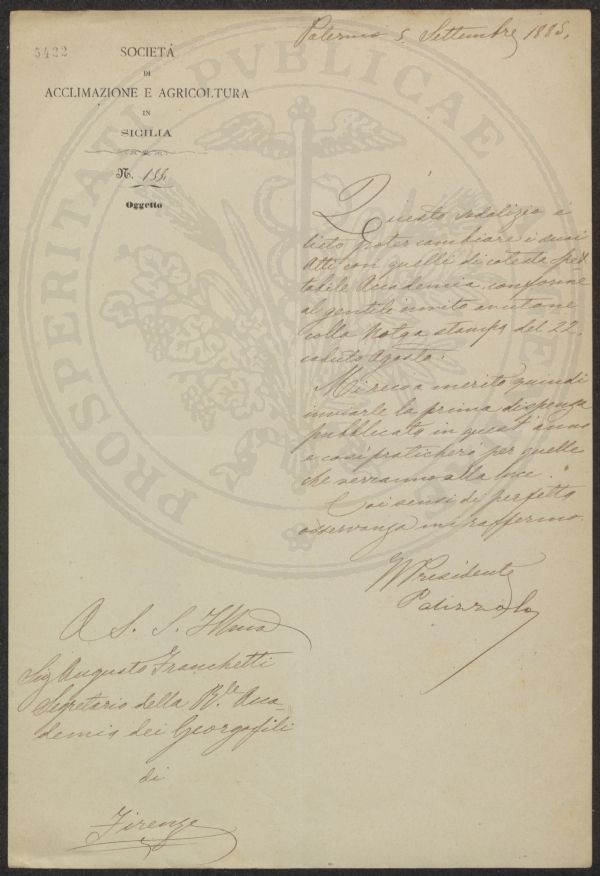 Palermo 5. Settembre 1885.
5422
SOCIETÀ
DI
ACCLIMAZIONE E AGRICOLTURA
IN
SICILIA
N. 156.
Oggetto
PROSPERITATI PVBLICAE
Questo sodalizio è
lieto poter cambiare i suoi
Atti con quelli di cotesta spet
tabile Accademia, conforme
al gentile invito avutone
colla stampa del 22.
caduto Agosto.
Mi reco a merito quindi
inviarle la prima dispensa
pubblicata in quest'anno
e così praticherò per quelle
che verranno alla luce.
Coi sensi di perfetta
osservanza mi raffermo.
Il Presidente
A S. S. Illma
Sig Augusto Franchetti
Segretario della Rle Acca-
demia dei Georgofili
di
Firenze